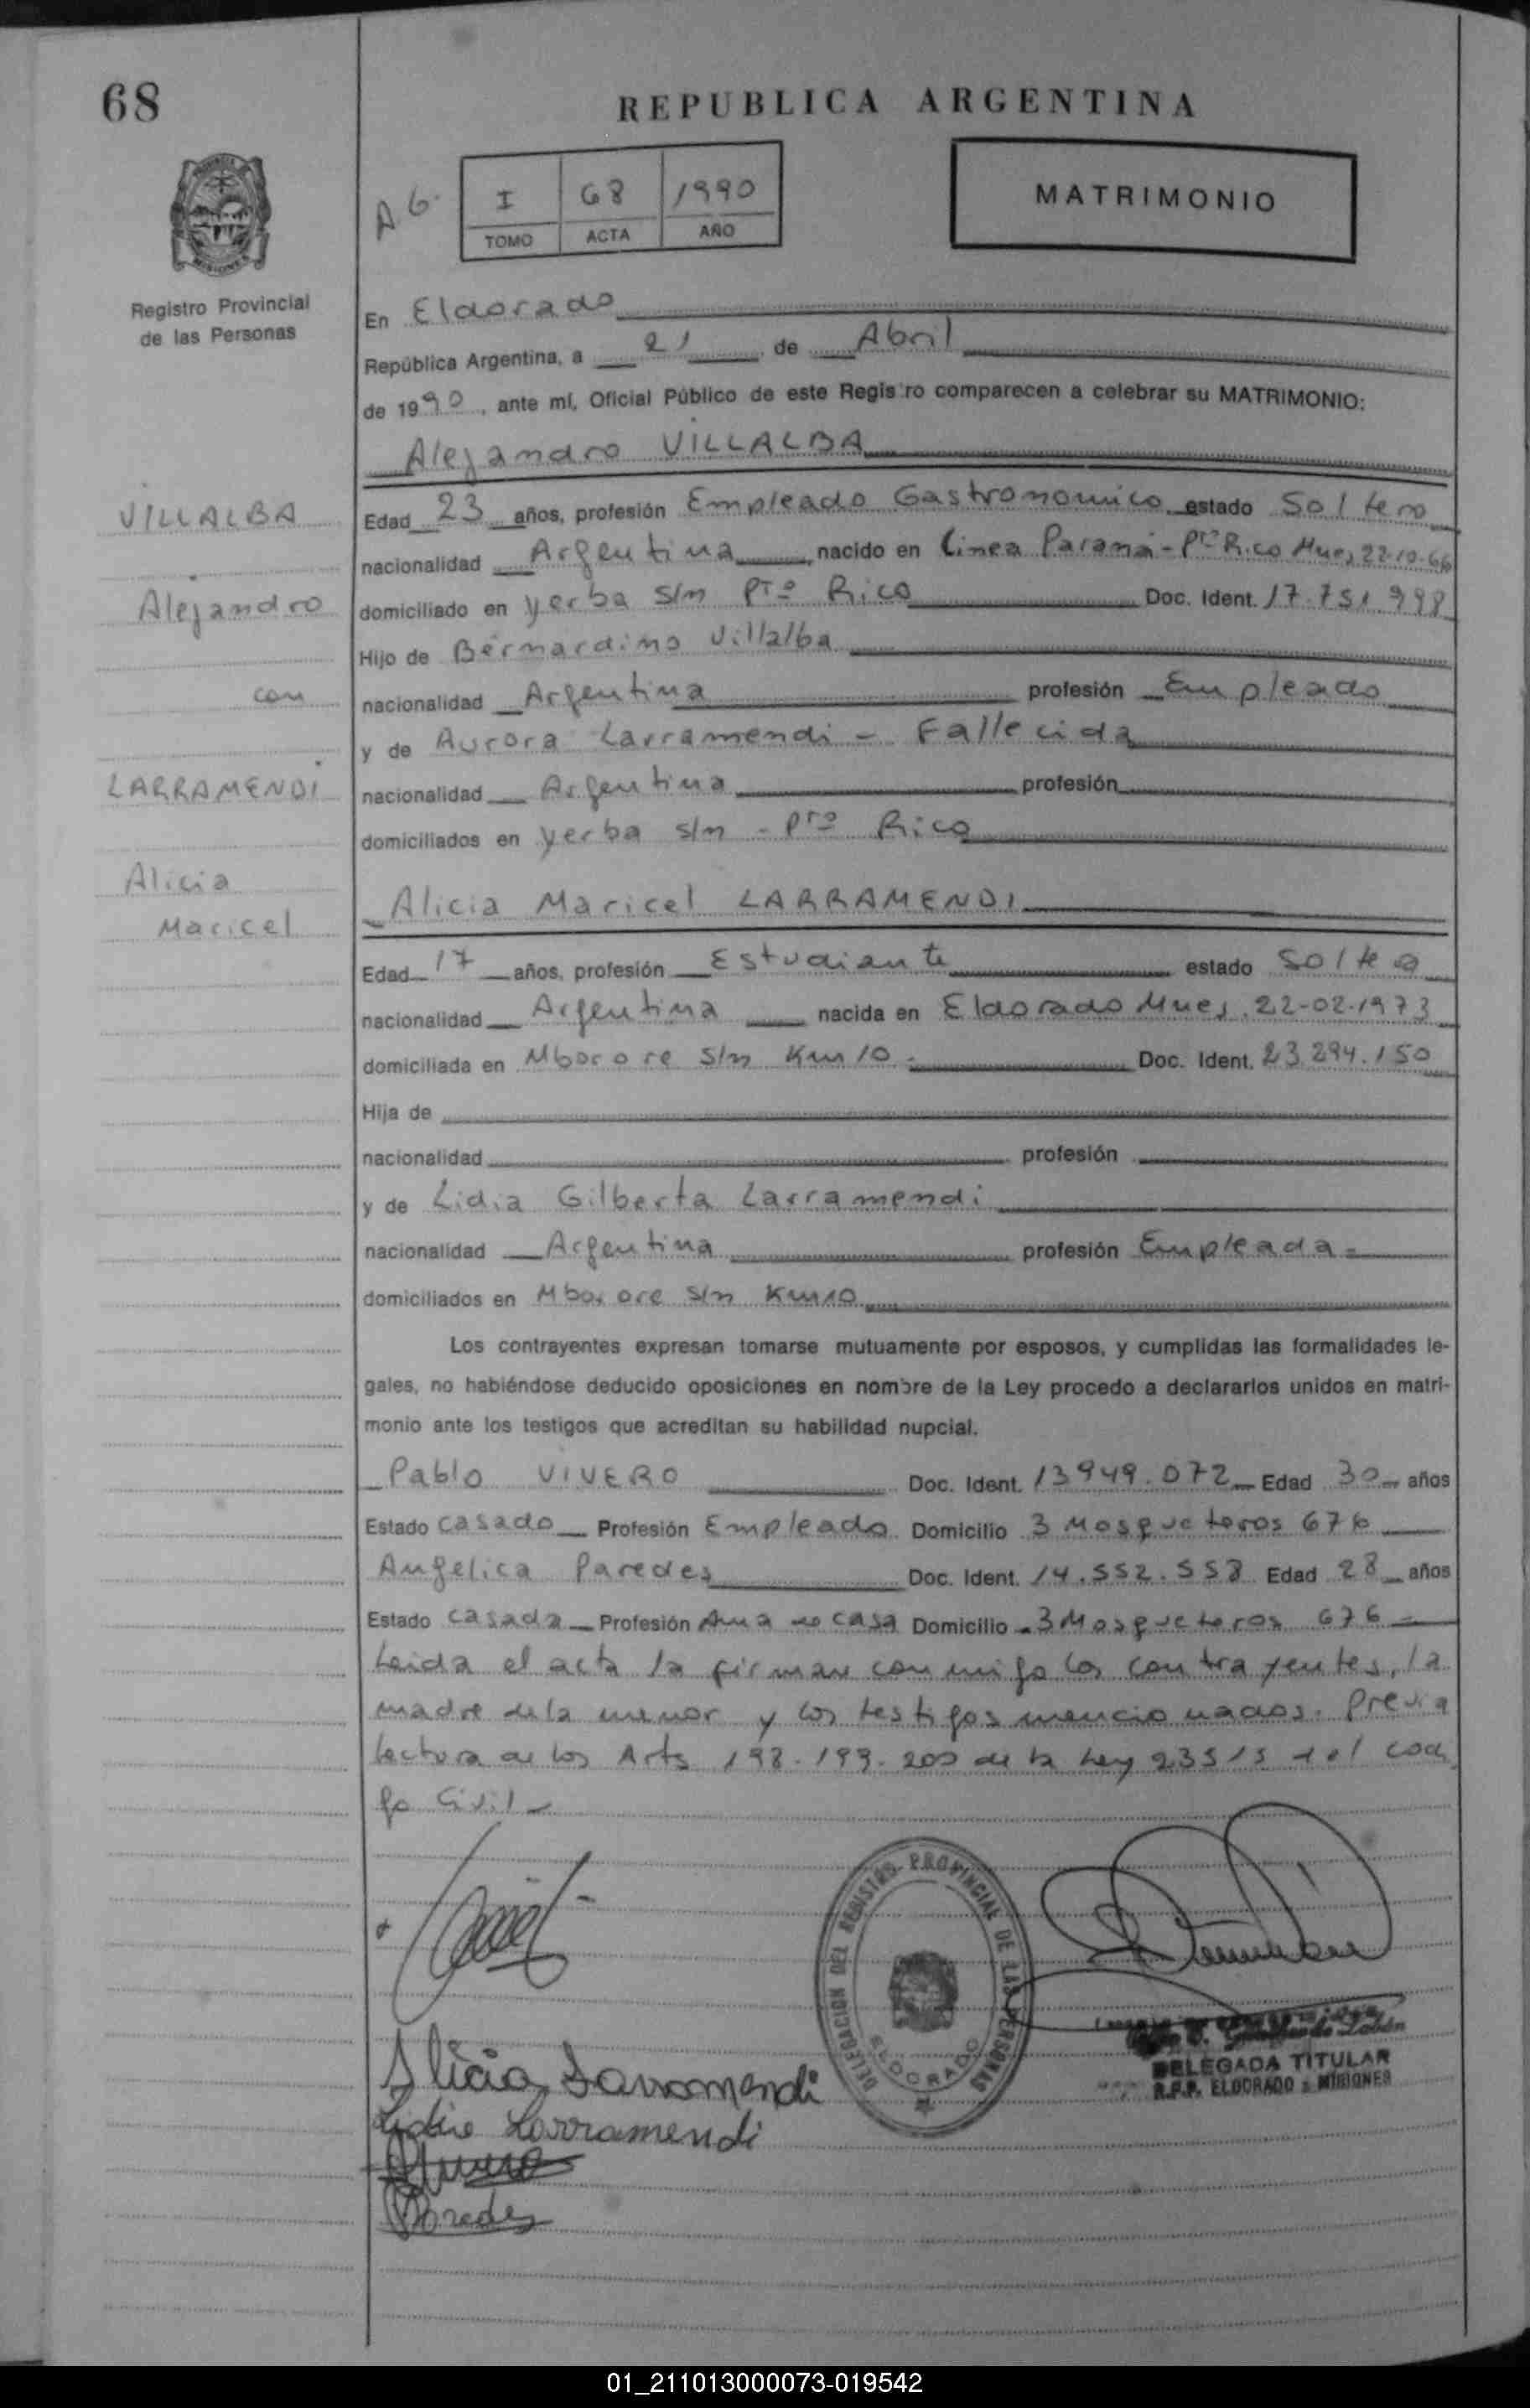 68
REPUBLICA ARGENTINA
A 6.
I 68 1990
TOMO ACTA AÑO
MATRIMONIO
Registro Provincial
de las Personas
En Eldorado
República Argentina, a 21 de Abril
de 1990, ante mí, Oficial Público de este Registro comparecen a celebrar su MATRIMONIO:
Alejandro VILLALBA
VILLALBA
Alejandro
con
LARRAMENDI
Alicia
Maricel
Edad 23 años, profesión Empleado Gastronomico estado Soltero
nacionalidad Argentina nacido en Linea Paraná - Pto Rico Mnes 22-10-66
domiciliado en yerba s/n Pto Rico Doc. Ident. 17.751.998
Hijo de Bernardino Villalba
nacionalidad Argentina profesión Empleado
y de Aurora Larramendi - Fallecida
nacionalidad Argentina profesión
domiciliados en yerba s/n - Pto Rico
Alicia Maricel LARRAMENDI
Edad 17 años, profesión Estudiante estado Soltera
nacionalidad Argentina nacida en Eldorado Mnes. 22-02-1973
domiciliada en Mborore s/n Km 10.- Doc. Ident. 23.294.150
Hija de
nacionalidad profesión
y de Lidia Gilberta Larramendi
nacionalidad Argentina profesión Empleada-
domiciliados en Mborore s/n Km 10
Los contrayentes expresan tomarse mutuamente por esposos, y cumplidas las formalidades le-
gales, no habiéndose deducido oposiciones en nombre de la Ley procedo a declararlos unidos en matri-
monio ante los testigos que acreditan su habilidad nupcial.
Pablo VIVERO Doc. Ident. 13949.072 Edad 30 años
Estado casado Profesión Empleado Domicilio 3 Mosqueteros 676
Angelica Paredes Doc. Ident. 14.552.558 Edad 28 años
Estado casada Profesión Ama de casa Domicilio 3 Mosqueteros 676-
Leida el acta la firman conmigo los contrayentes, la
madre de la menor y los testigos mencionados. Previa
lectura de los Arts 198-199-200 de la Ley 23515 del codi
go Civil-
DELEGACION DEL REGISTRO PROVINCIAL DE LAS PERSONAS
ELDORADO
DELEGADA TITULAR
R.P.P. ELDORADO - MISIONES
Alicia Larramendi
Lidia Larramendi
Paredes
01_211013000073-019542